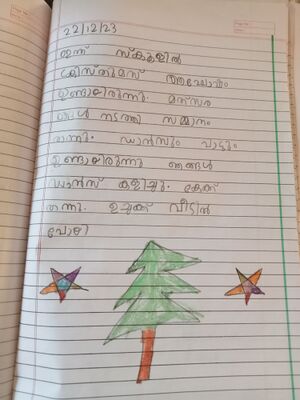 22/12/23
ഇന്ന് സ്കൂളിൽ
ക്രിസ്തുമസ് ആഘോഷം
ഉണ്ടായിരുന്നു. മത്സര
ങ്ങൾ നടത്തി സമ്മാനം
തന്നു. ഡാൻസും പാട്ടും
ഉണ്ടായിരുന്നു ഞങ്ങൾ
ഡാൻസ് കളിച്ചു. കേക്ക്
തന്നു. ഉച്ചക്ക് വീട്ടിൽ
പോയി